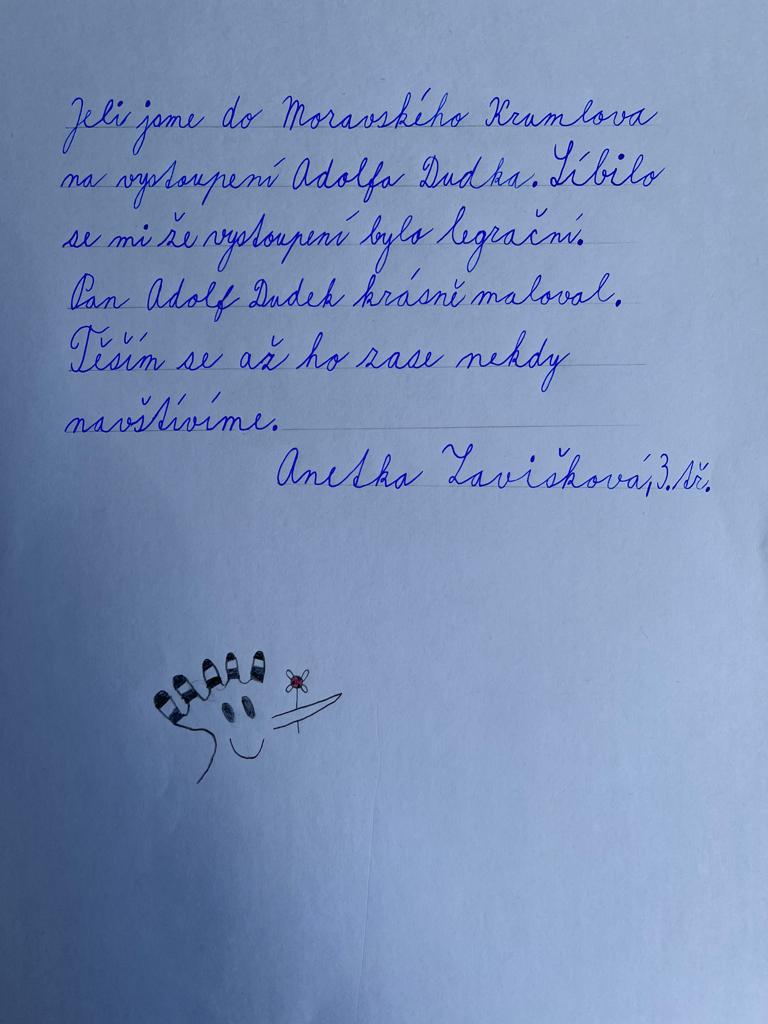 Jeli jsme do Moravského Krumlova
na vystoupení Adolfa Dudka. Líbilo
se mi že vystoupení bylo legrační.
Pan Adolf Dudek krásně maloval.
Těším se až ho zase nekdy
navštívíme.
Anetka Zavišková, 3. tř.